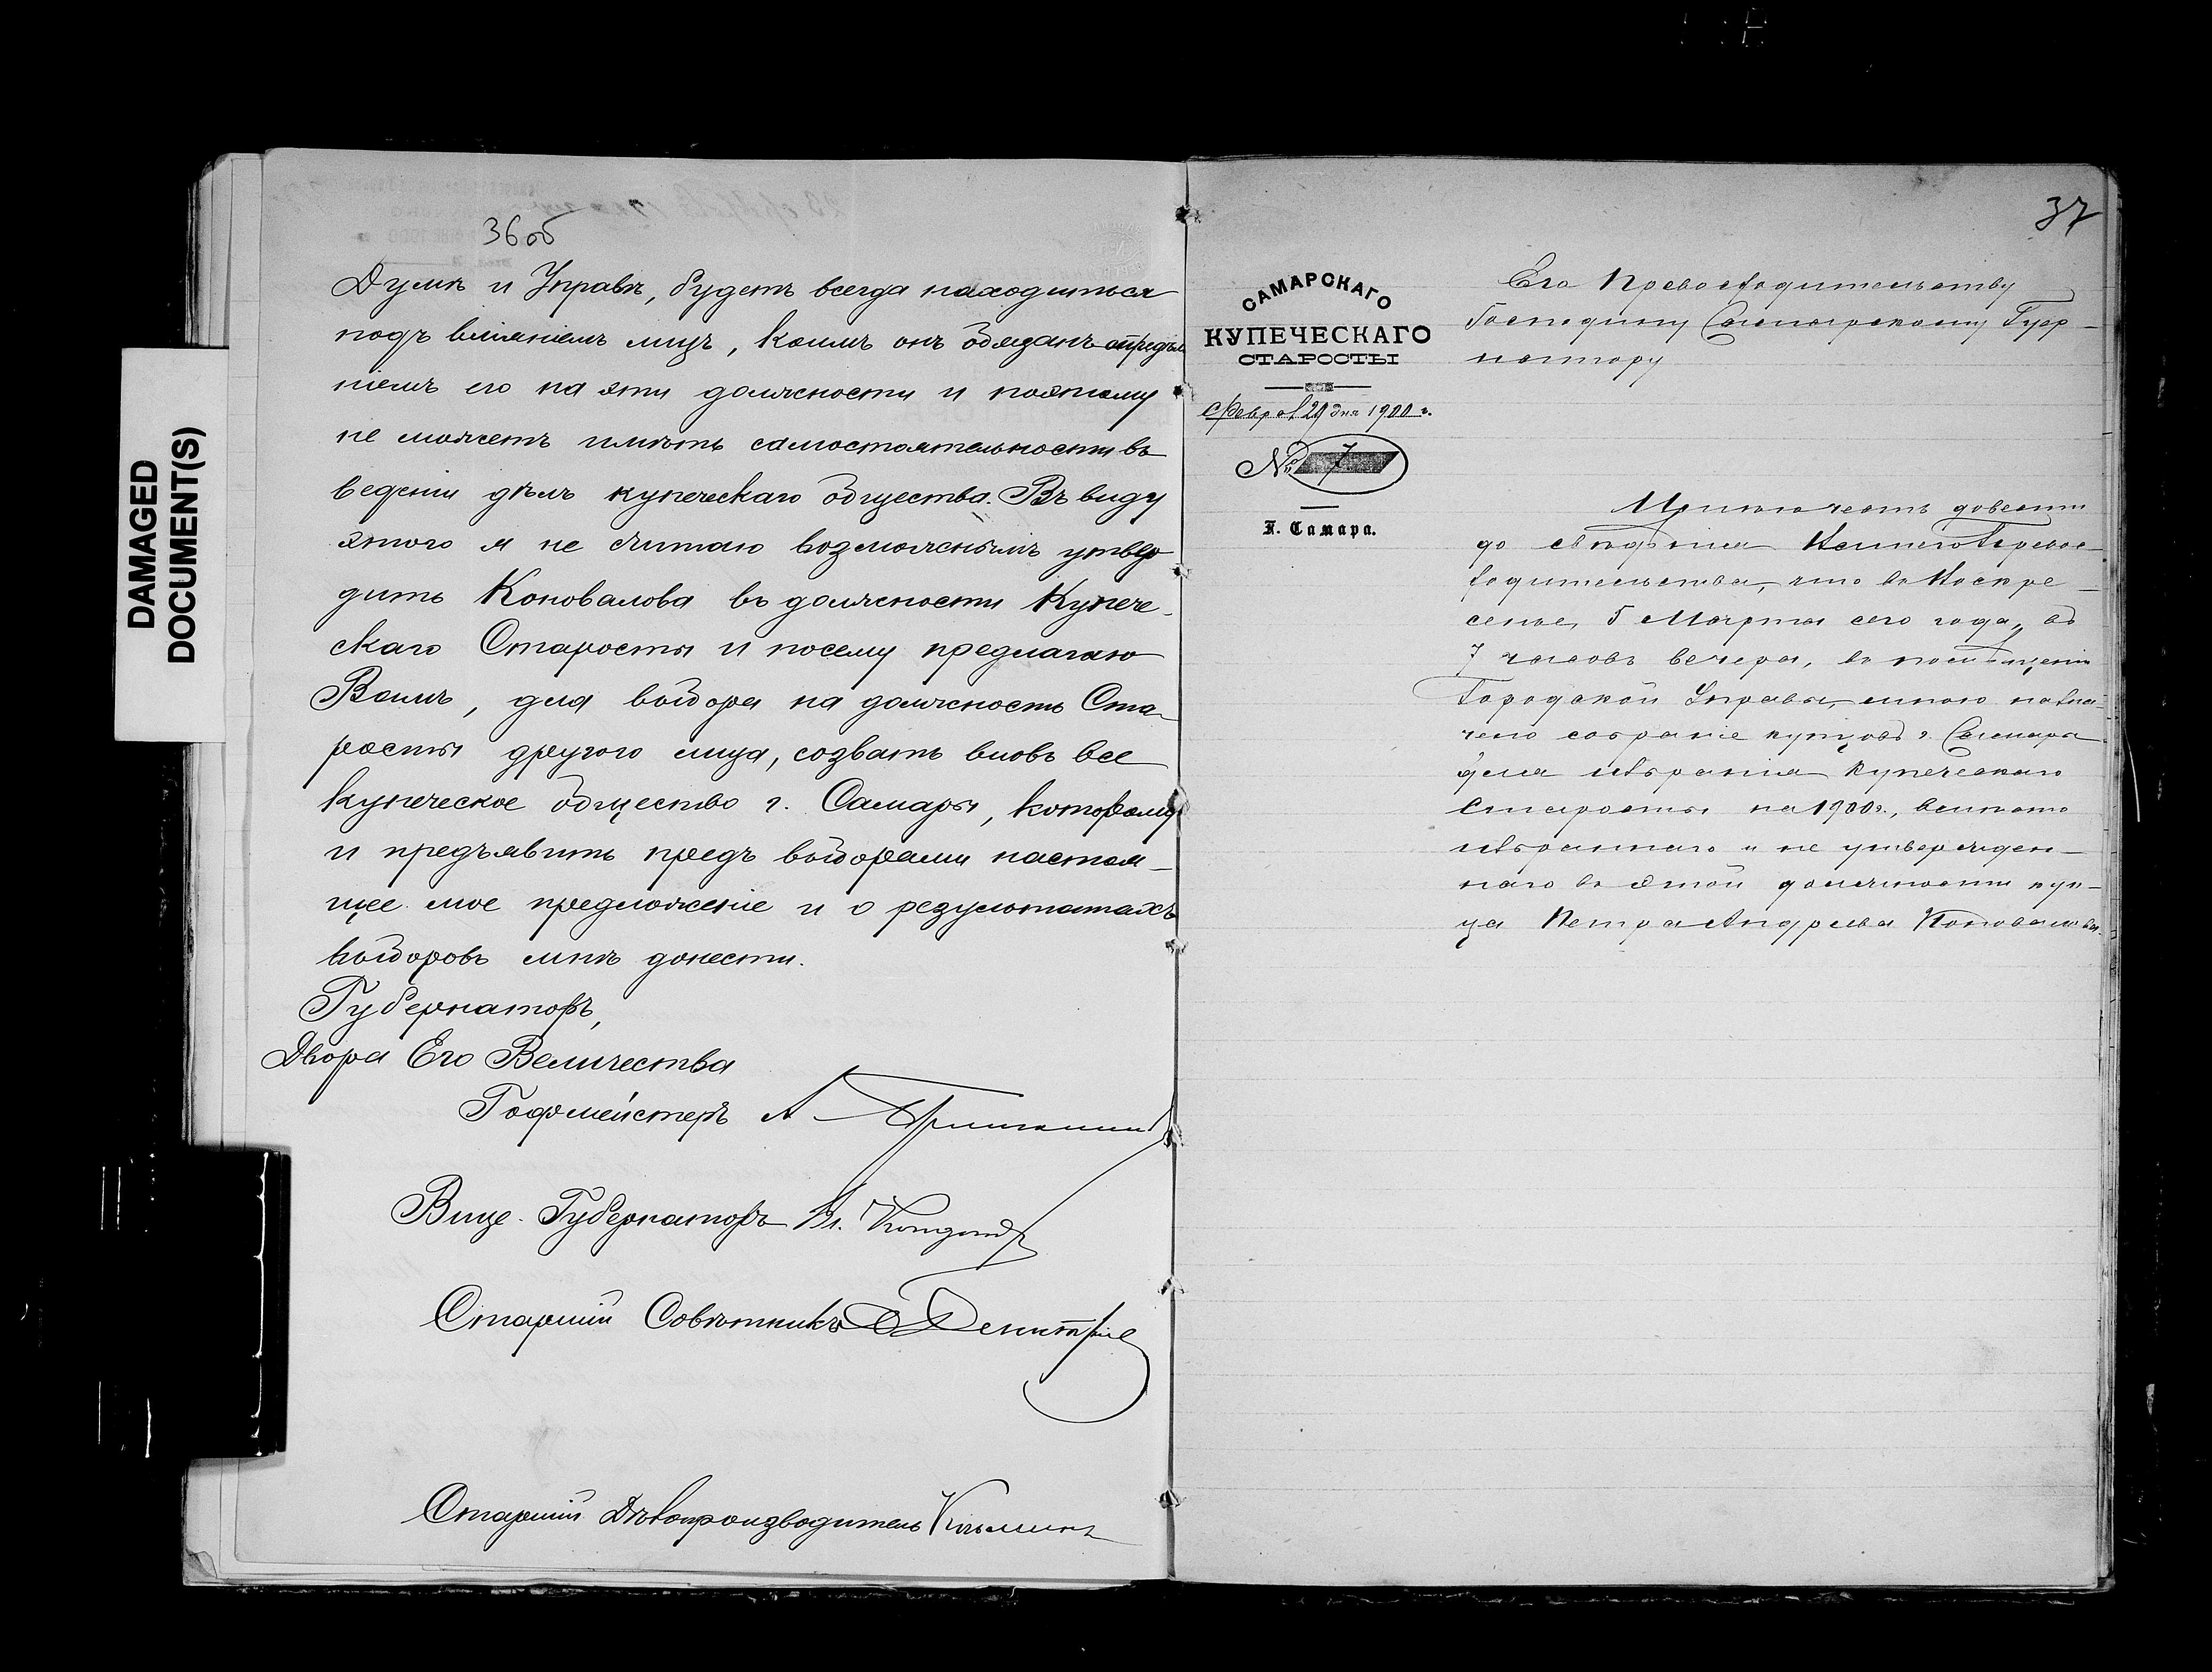 DAMAGED
DOCUMENT(S)
36 об
Думѣ и Управѣ, будетъ всегда находиться
подъ вліяніемъ лицъ, коимъ онъ обязанъ опредѣле
ніемъ его на эти должности и поэтому
не можетъ имѣть самостоятельности въ
веденіи дѣлъ купеческаго общества. Въ виду
этого я не считаю возможнымъ утвер
дить Коновалова въ должности Купече-
скаго Старосты и посему предлагаю
Вамъ, для выбора на должность Ста-
росты другого лица, созвать вновь все
купеческое общество г. Самары, которому
и предъявить предъ выборами настоя-
щее мое предложеніе и о результатахъ
выборовъ мнѣ донести.
Губернаторъ,
Двора Его Величества
Гофмейстеръ А
Вице-Губернаторъ Вл. Кондоиди
Старшій Совѣтникъ
Старшій Дѣлопроизводитель
37
САМАРСКАГО
КУПЕЧЕСКАГО
СТАРОСТЫ
Феврал 29 дня 1900 г.
№ 7
Г. Самара.
Его Превосходительству
Господину Самарскому Губер-
натору
Имѣю честь довести
до свѣдѣнія Вашего Превос-
ходительства, что въ Воскре-
сенье, 5 Марта сего года, въ
7 часовъ вечера, въ помѣщеніи
Городской Управы, мною назна-
чено собраніе купцовъ г. Самары
для избранія Купеческаго
Старосты на 1900 г., взамѣнъ
избраннаго и не утвержден-
наго въ этой должности куп-
ца Петра Андреева Коновалова.